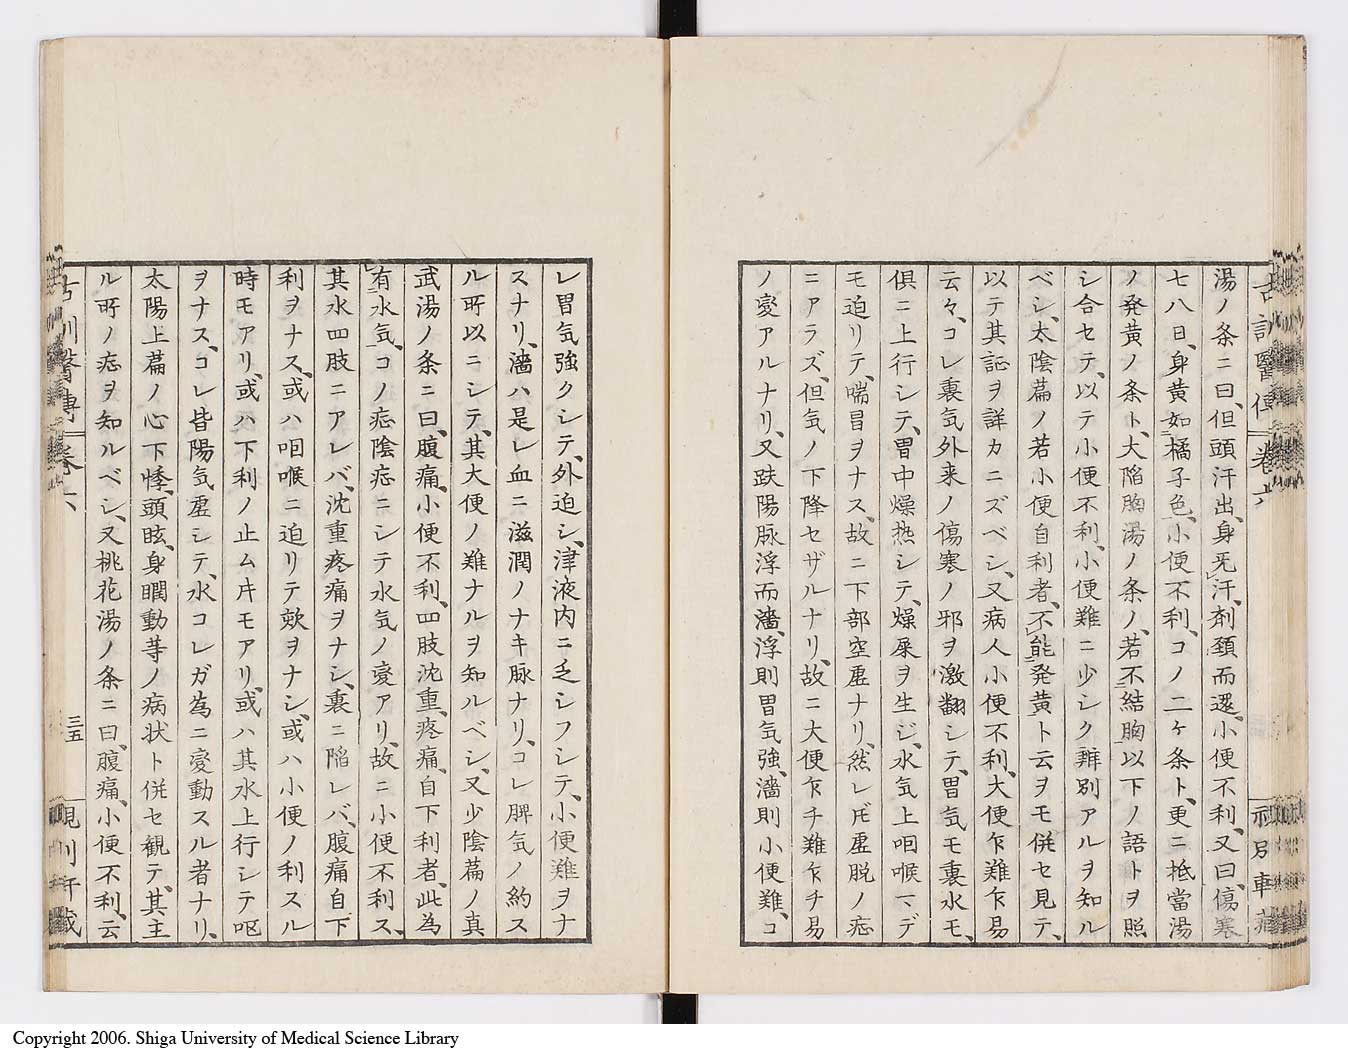 湯ノ条ニ曰、但頭汗出、身旡汗、剤頚而還、小便不利、又曰、傷寒
七八日、身黄如橘子色、小便不利、コノ二ケ条ト、更ニ抵當湯
ノ発黄ノ条ト、大陥胸湯ノ条ノ、若不結胸以下ノ語トヲ照
シ合セテ、以テ小便不利、小便難ニ少シク辨別アルヲ知ル
ベシ、太陰萹ノ若小便自利者、不能発黄ト云ヲモ併セ見テ、
以テ其証ヲ詳カニズベシ、又病人小便不利、大便乍難乍易
云々、コレ裏気外来ノ傷寒ノ邪ヲ激翻シテ、胃気モ裏水モ、
倶ニ上行シテ、胃中燥熱シテ、燥屎ヲ生ジ、水気上咽喉マデ
モ迫リテ、喘冒ヲナス、故ニ下部空虚ナリ、然レ𪜈虚脱ノ㾂
ニアラズ、但気ノ下降セザルナリ、故ニ大便乍チ難乍チ易
ノ変アルナリ、又趺陽脉浮而濇、浮則胃気強、濇則小便難、コ
レ胃気強クシテ、外迫シ、津液内ニ乏シフシテ、小便難ヲナ
スナリ、濇ハ是レ血ニ滋潤ノナキ脉ナリ、コレ脾気ノ約ス
ル所以ニシテ、其大便ノ難ナルヲ知ルベシ、又少陰萹ノ真
武湯ノ条ニ曰、腹痛、小便不利、四肢沈重、疼痛、自下利者、此為
有水気、コノ㾂陰㾂ニシテ水気ノ変アリ、故ニ小便不利ス、
其水四肢ニアレバ、沈重疼痛ヲナシ、裏ニ陥レバ、腹痛自下
利ヲナス、或ハ咽喉ニ迫リテ欬ヲナシ、或ハ小便ノ利スル
時モアリ、或ハ下利ノ止ム𪜈モアリ、或ハ其水上行シテ呕
ヲナス、コレ皆陽気虚シテ、水コレガ為ニ変動スル者ナリ、
太陽上萹ノ心下悸、頭眩、身瞤動等ノ病状ト併セ観テ、其主
ル所ノ㾂ヲ知ルベシ、又桃花湯ノ条ニ曰、腹痛、小便不利、云
古訓醫傳 巻六
三五